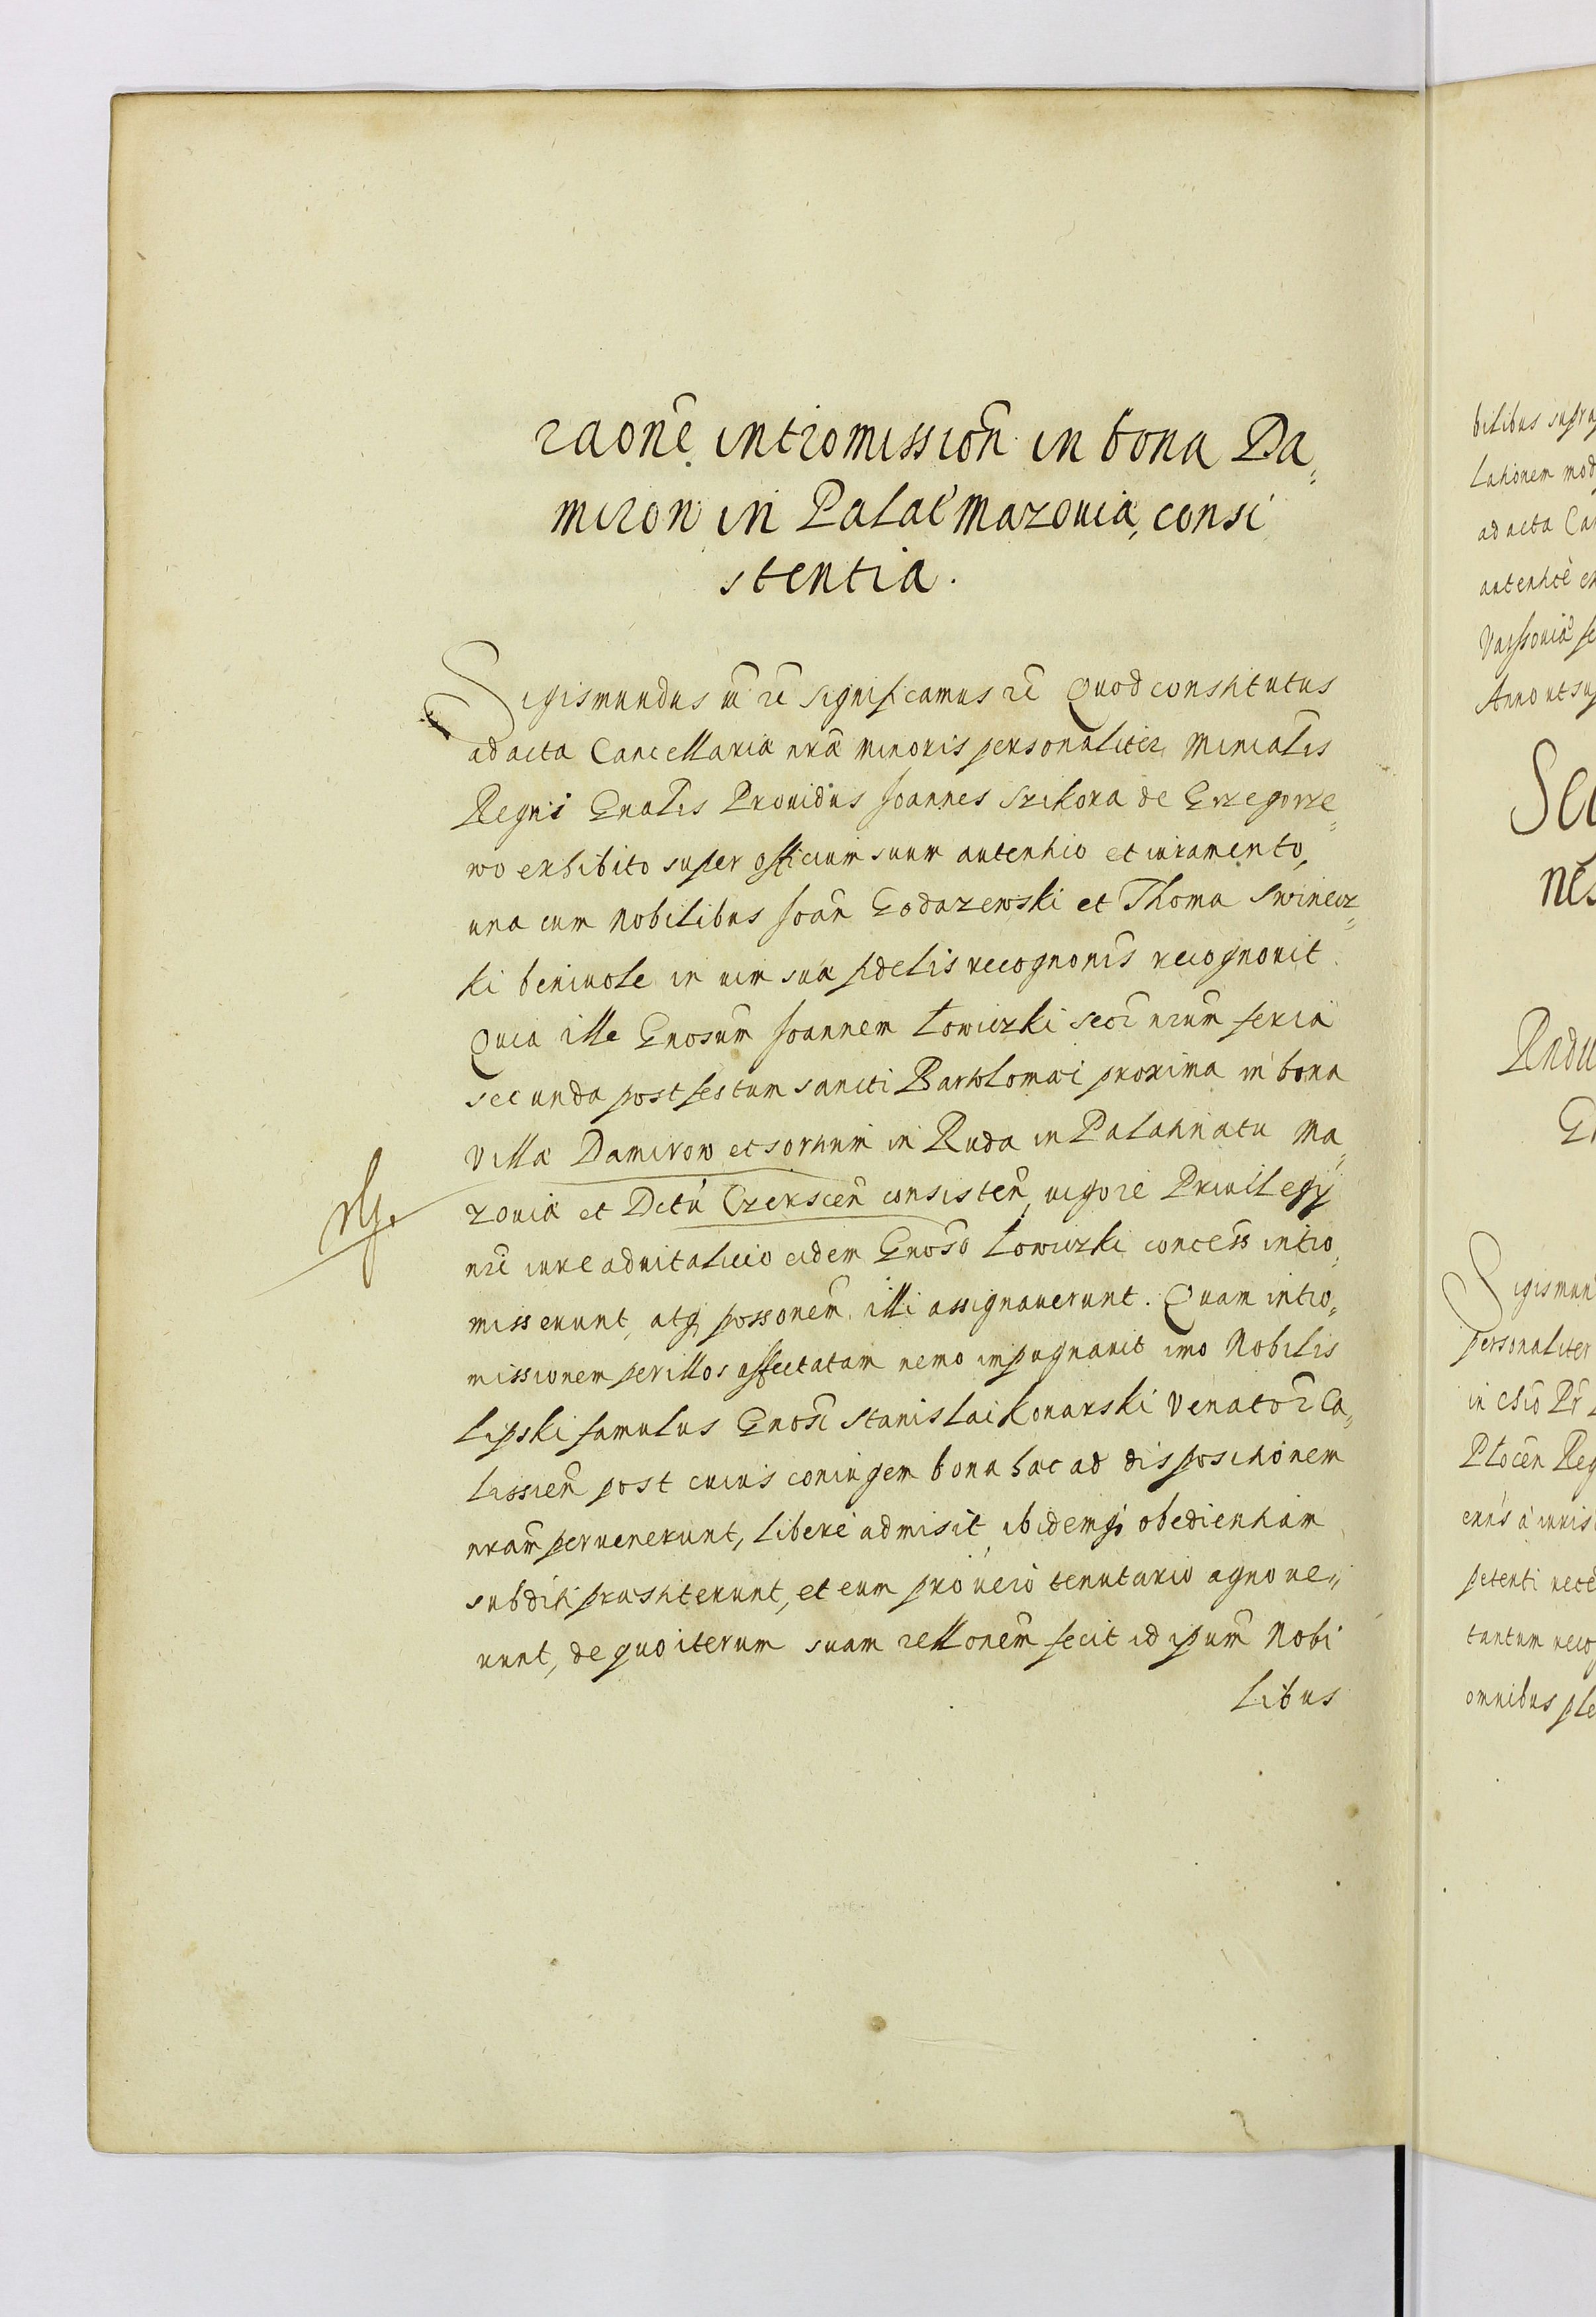 raone intromission in bona Da„
miron in Palat Mazouiæ, consi
stentia.
Sigismundus iii rc significamus rc Quod constitutus
ad acta Cancellariæ nræ minoris personaliter minialis
Regni Gnalis Prouidus Joannes Szikora de Grzegorze„
wo exhibito super officium suum autentico et iuramento,
una cum Nobilibus Joan Godazewski et Thoma Swinecz„
ki beniuole in uim suæ fidelis recognonis recognouit.
Quia ille Gnosum Joannem Łowiczki Secr nrum feria
secunda post festum sancti Bartholomæi proxima in bona
Villæ Damirow et sortium in Ruda in Palatinatu Ma„
zouiæ et Dctu Czerscen consisten, uigore Priuilegÿ
nri iure aduitalicio eidem Gnoso Łowiczki concess intro„
misserunt, atq possonem illi assignauerunt. Quam intro„
missionem per illos affectatam nemo impugnauit imo Nobilis
Lipski famulus Gnosi Stanislai Konarski Venator Ca„
lissien post cuius coniugem bona hæc ad dispositionem
nram peruenerunt, libere admisit, ibidemq obedientiam
subditi præstiterunt, et eum pro uero tenutario agnoue„
runt, de quo iterum suam rellonem fecit id ipsum Nobi
libus
bilibus supra
lationem mod
ad acta Ca
autentice ex
Varssouiæ fe
Anno ut sup
Sec
nis
Radu
Sigismun
personaliter
Plocen Reg
petenti rece
tantum reco
omnibus ple